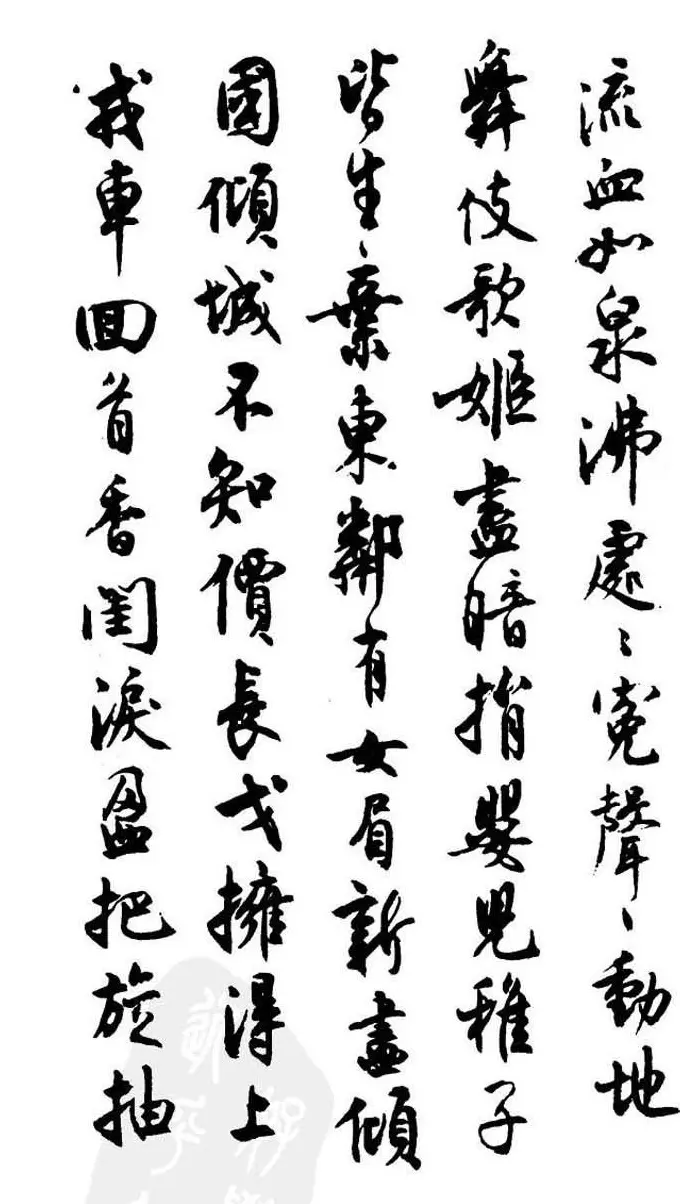 流血如泉沸處〻冤聲〻動地
舞伎歌姬盡暗捐嬰兒稚子
皆生〻棄東鄰有女眉新畫傾
國傾城不知價長戈擁得上
戎車回首香閨淚盈把旋抽